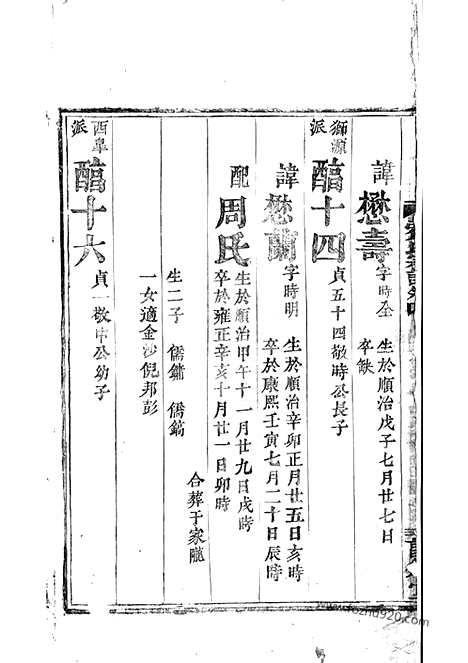 諱懋壽字時全 生於順治戊子七月廿七日
卒缺
獅源派 醕十四 貞五十四敬時公長子
諱懋蘭字時明 生於順治辛卯正月廿五日亥時
卒於康熙壬寅七月二十日辰時
配周氏 生於順治甲午十一月廿九日戌時
卒於雍正辛亥十月廿一日卯時
合葬于家隴
生二子 儒鏞 儒鎬
一女適金沙倪邦彭
西臯派 醕十六 貞一敬中公幼子